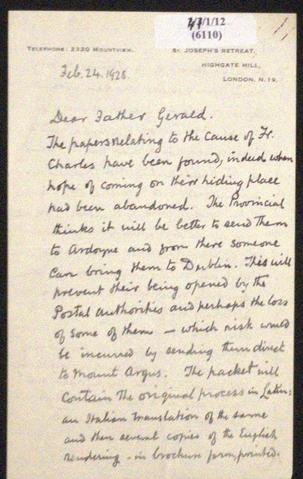 3/1/12
(6110)
TELEPHONE: 2320 MOUNTVIEW.
ST. JOSEPH'S RETREAT,
HIGHGATE HILL,
LONDON, N.19.
Feb. 24. 1928.
Dear Father Gerald.
The papers relating to the Cause of Fr.
Charles have been found, indeed when
hope of coming on their hiding place
had been abandoned. The Provincial
thinks it will be better to send them
to Ardoyne and from there someone
can bring them to Dublin. This will
prevent their being opened by the
Postal Authorities and perhaps the loss
of some of them — which risk would
be incurred by sending them direct
to Mount Argus. The packet will
contain the original process in Latin:
an Italian translation of the same
and then several copies of the English
rendering - in brochure form, printed.